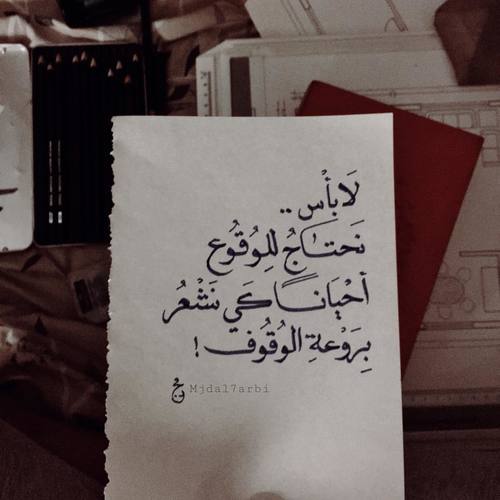 لَا بأْس ..
نَحتاجُ للِوُقُوع
أحْيَانًا كَي نَشْعُر
بِرَوْعةِ الوُقُوف !
Mjdal7arbi